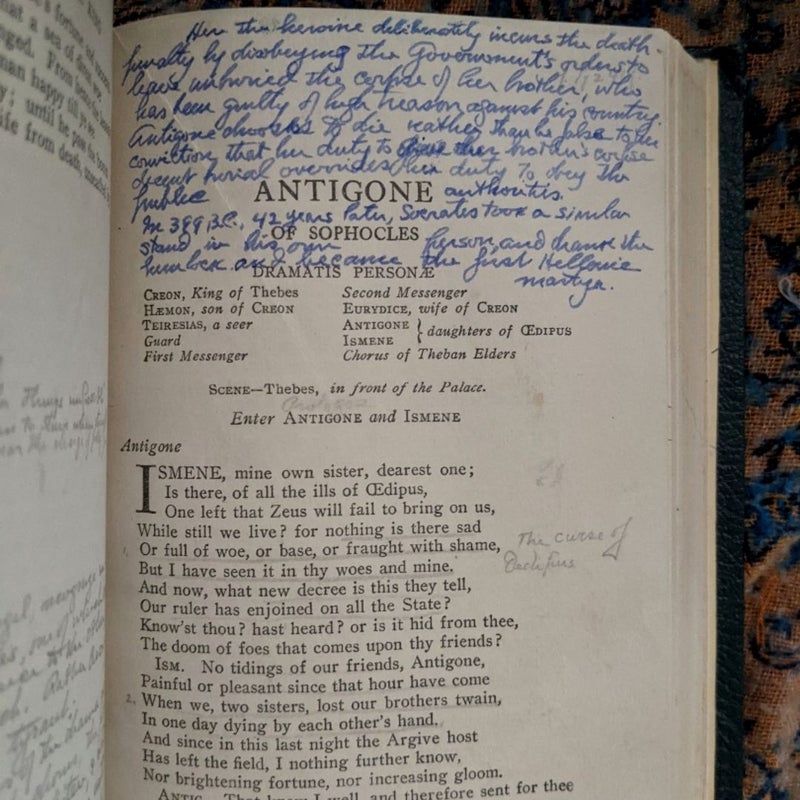 Here the heroine deliberately incurs the death-
penalty by disobeying the Government's orders to
leave unburied the corpse of her brother, who
has been guilty of high treason against his country.
Antigone chooses to die rather than be false to her
conviction that her duty to give her brother's corpse
decent burial overrides her duty to obey the
public authorities.
ANTIGONE
In 399 B.C., 42 years later, Socrates took a similar
OF SOPHOCLES
stand in his own person and drank the
hemlock and became the first Hellenic
martyr.
DRAMATIS PERSONÆ
CREON, King of Thebes
HÆMON, son of CREON
TEIRESIAS, a seer
Guard
First Messenger
Second Messenger
EURYDICE, wife of CREON
ANTIGONE } daughters of ŒDIPUS
ISMENE
Chorus of Theban Elders
SCENE—Thebes, in front of the Palace.
Enter ANTIGONE and ISMENE
Antigone
ISMENE, mine own sister, dearest one;
Is there, of all the ills of Œdipus,
One left that Zeus will fail to bring on us,
While still we live? for nothing is there sad
1. Or full of woe, or base, or fraught with shame,
But I have seen it in thy woes and mine.
The curse of
Oedipus
And now, what new decree is this they tell,
Our ruler has enjoined on all the State?
Know'st thou? hast heard? or is it hid from thee,
The doom of foes that comes upon thy friends?
ISM. No tidings of our friends, Antigone,
Painful or pleasant since that hour have come
2. When we, two sisters, lost our brothers twain,
In one day dying by each other's hand.
And since in this last night the Argive host
Has left the field, I nothing further know,
Nor brightening fortune, nor increasing gloom.
ANTIG. That knew I well, and therefore sent for thee